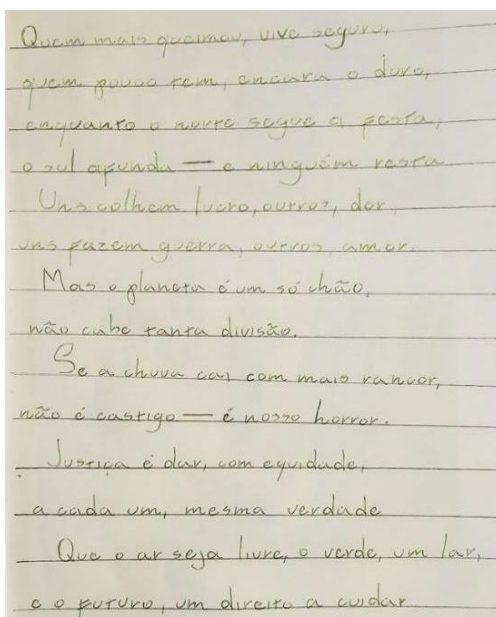 Quem mais queimou, vive seguro,
quem pouco tem, encara o duro,
enquanto o norte segue a festa,
o sul afunda — e ninguém resta
Uns colhem lucro, outros, dor
uns fazem guerra, outros, amor.
Mas o planeta é um só chão,
não cabe tanta divisão.
Se a chuva cai com mais rancor,
não é castigo — é nosso horror.
Justiça é dar, com equidade,
a cada um, mesma verdade
Que o ar seja livre, o verde, um lar,
e o futuro, um direito a cuidar